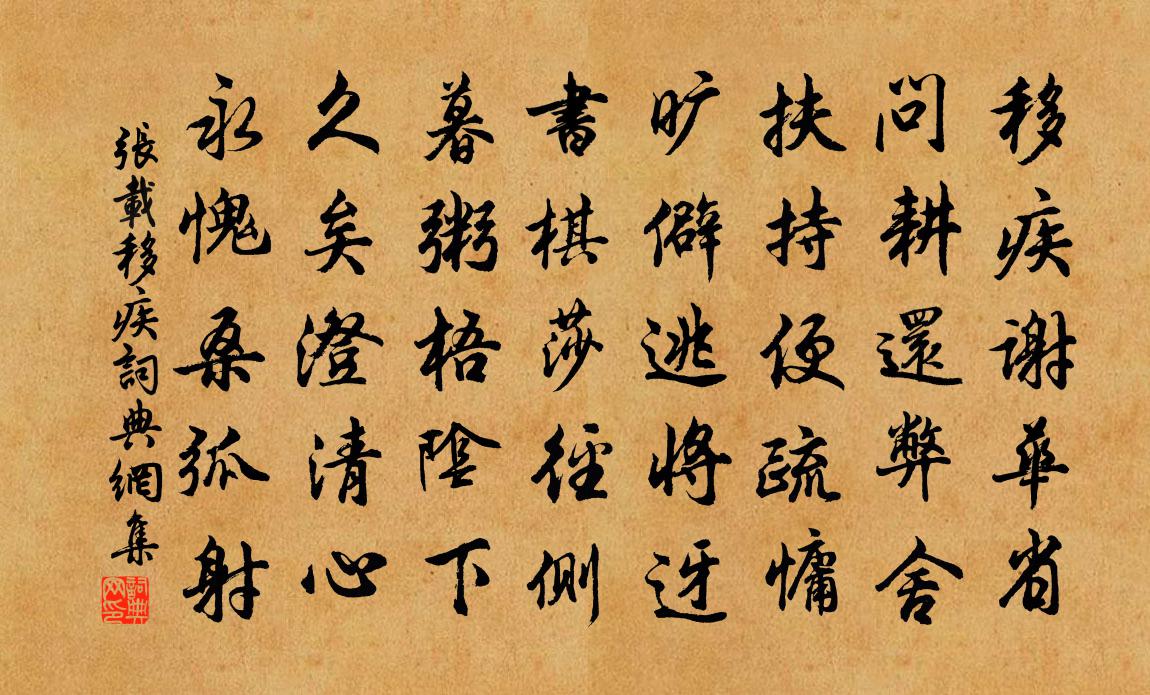 移疾謝華省
問耕還弊舍
扶持便疏慵
旷僻逃將迓
書棋莎徑側
暮粥梧陰下
久矣澄清心
永愧桑弧射
張載移疾詞典網集
詞典网印